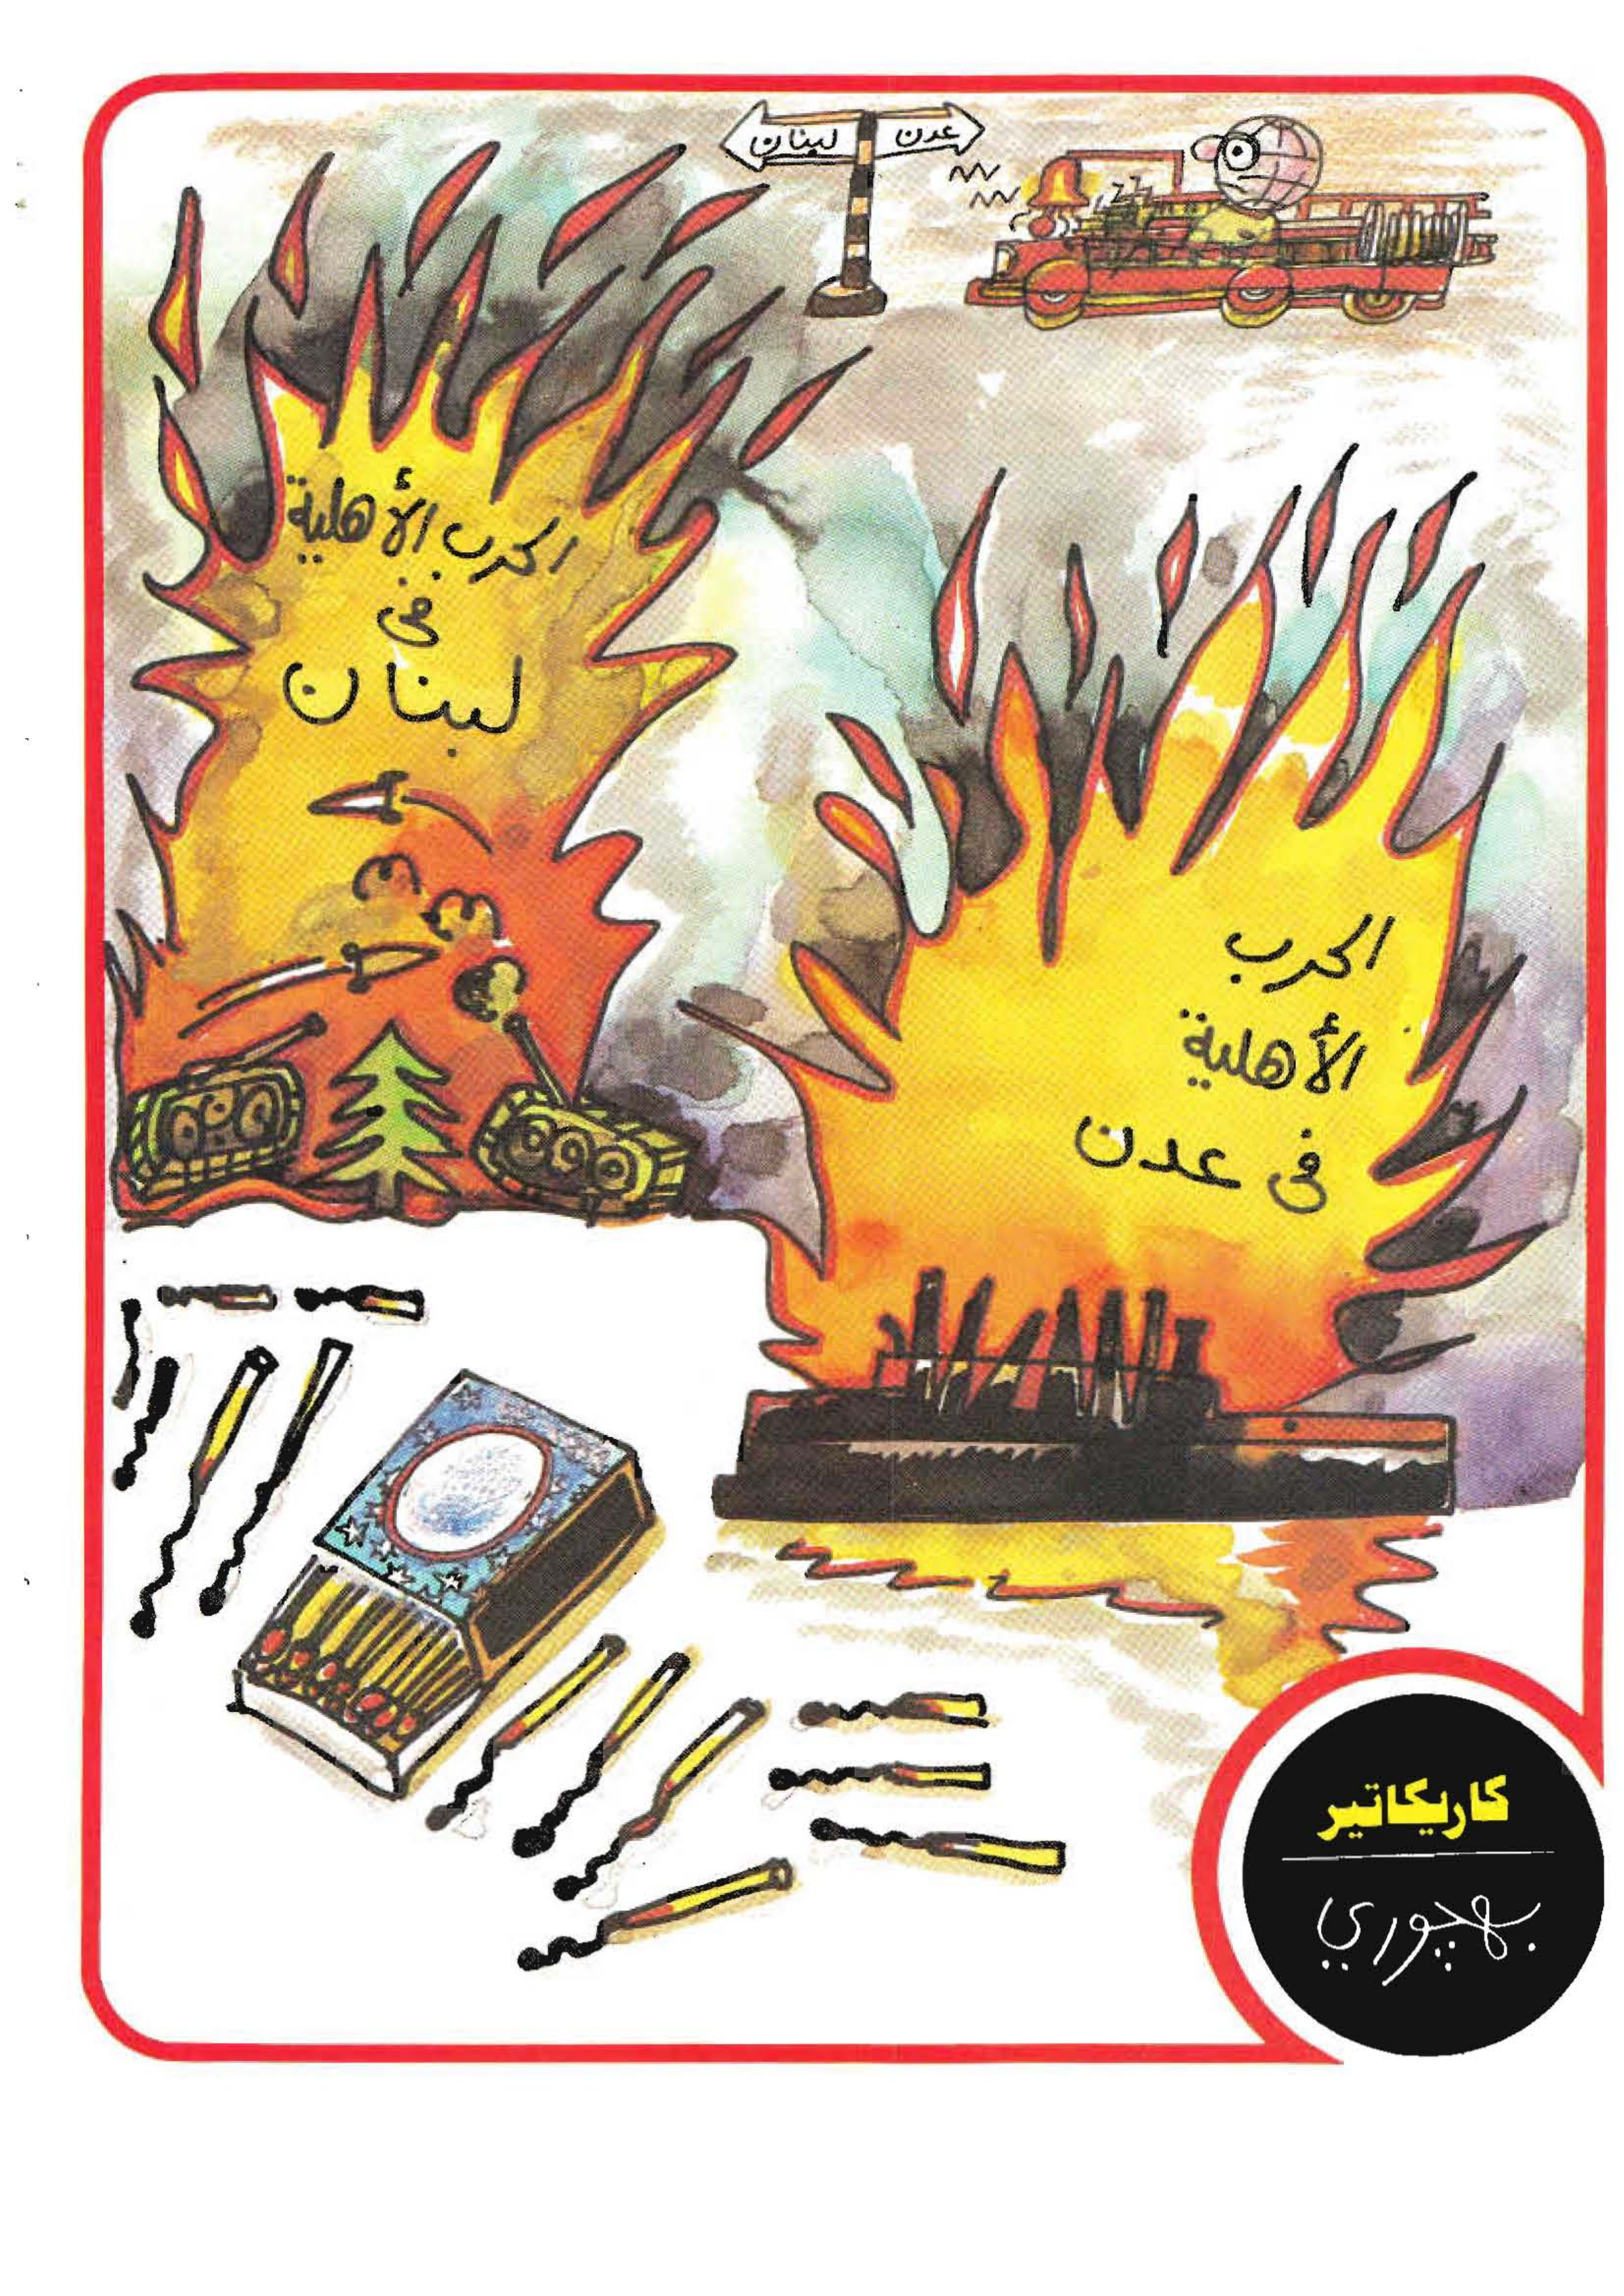 لبنان
عدن
الحرب الأهلية
في
لبنان
الحرب
الأهلية
في عدن
كاريكاتير
بهچوري